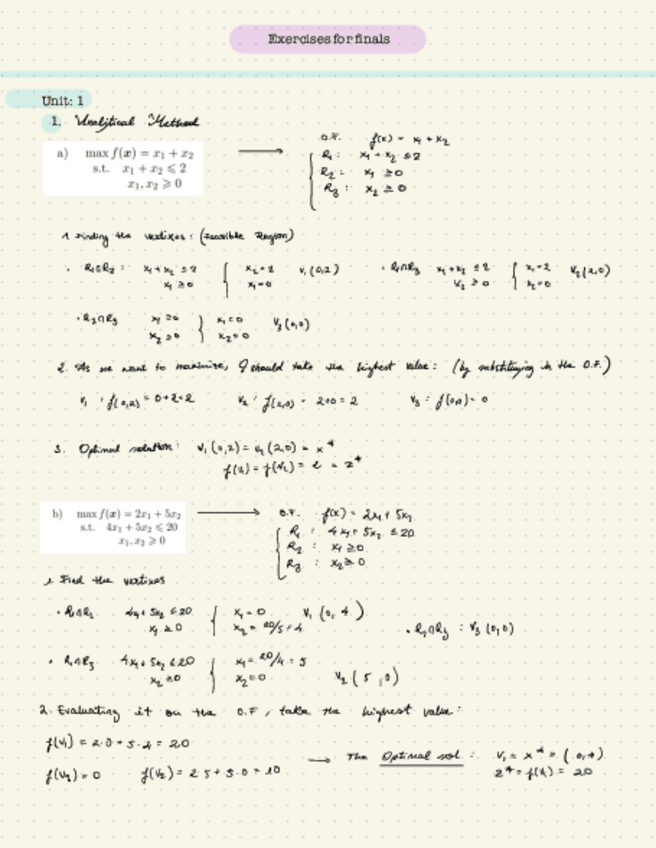 Exercises for finals
Unit: 1
1. Analitical Method
a) max f(x) = x₁ + x₂
s.t. x₁ + x₂ ⩽ 2
x₁, x₂ ⩾ 0
→
O.F. f(x) = x₁ + x₂
R₁ : x₁ + x₂ ≤ 2
R₂ : x₁ ≥ 0
R₃ : x₂ ≥ 0
1. Finding the vertixes: (Feasible Region)
· R₁∩R₂ : x₁ + x₂ ≤ 2 { x₂ = 2 V₁ (0,2)
x₁ ≥ 0 x₁ = 0
· R₁∩R₃ x₁ + x₂ ≤ 2 { x₁ = 2 V₂ (2,0)
x₂ ≥ 0 x₂ = 0
· R₂∩R₃ x₁ ≥ 0 } x₁ = 0 V₃ (0,0)
x₂ ≥ 0 x₂ = 0
2. As we want to maximize, I should take the highest value: (by substituying in the O.F.)
V₁ : f(0,2) = 0+2 = 2 V₂ : f(2,0) = 2+0 = 2 V₃ : f(0,0) = 0
3. Optimal solution: V₁ (0,2) = V₂ (2,0) = x*
f(V₁) = f(V₂) = 2 = z*
b) max f(x) = 2x₁ + 5x₂
s.t. 4x₁ + 5x₂ ⩽ 20
x₁, x₂ ⩾ 0
→
O.F. f(x) = 2x₁ + 5x₂
R₁ : 4x₁ + 5x₂ ≤ 20
R₂ : x₁ ≥ 0
R₃ : x₂ ≥ 0
1. Find the vertixes
· R₁∩R₂ 4x₁ + 5x₂ ≤ 20 { x₁ = 0 V₁ (0, 4)
x₁ ≥ 0 x₂ = 20/5 = 4
· R₂∩R₃ : V₃ (0,0)
· R₁∩R₃ 4x₁ + 5x₂ ≤ 20 { x₁ = 20/4 = 5
x₂ ≥ 0 x₂ = 0 V₂ (5, 0)
2. Evaluating it on the O.F, take the highest value:
f(V₁) = 2·0 + 5·4 = 20
f(V₃) = 0 f(V₂) = 2·5 + 5·0 = 10
→ The Optimal sol : V₁ = x* = (0,4)
z* = f(V₁) = 20